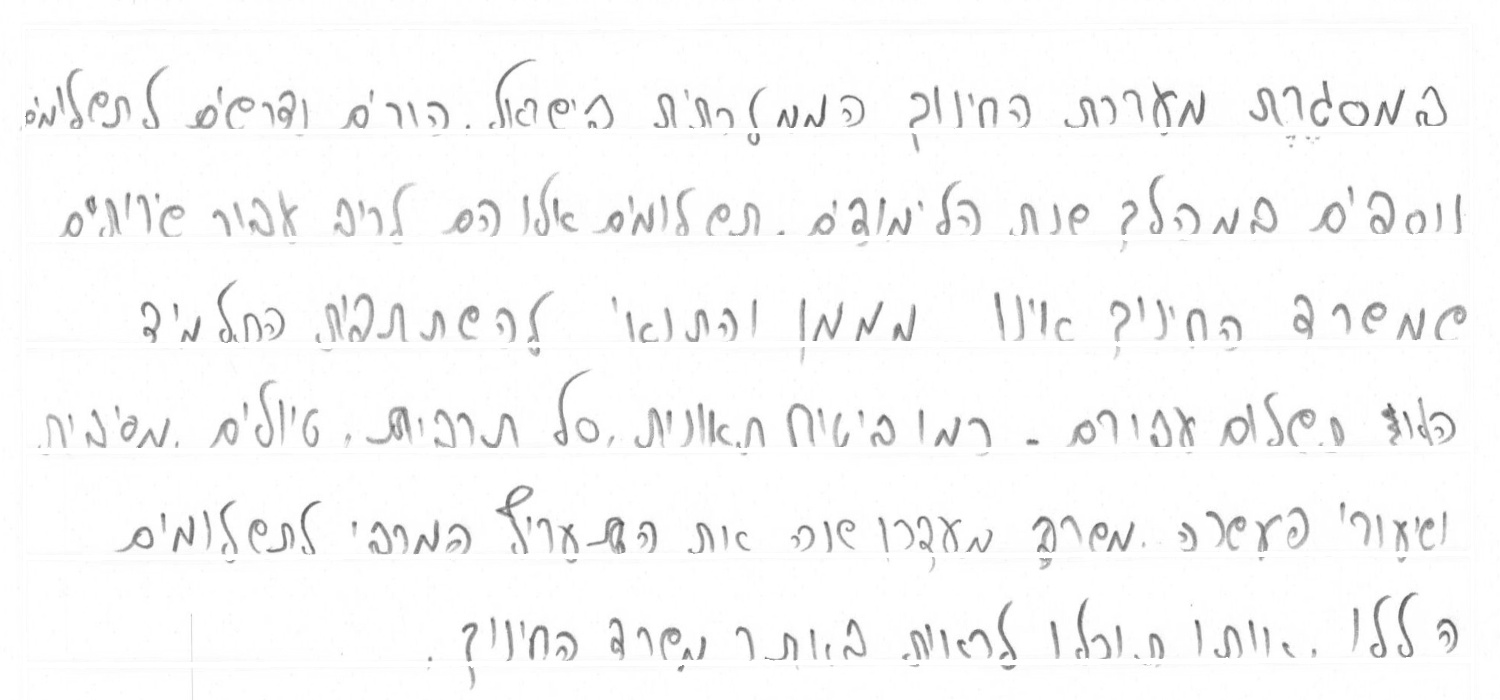 במסגרת מערכת החינוך הממלכתית בישראל. הורים נדרשים לתשלומים
נוספים במהלך שנת הלימודים. תשלומים אלו הם לרוב עבור שירותים
שמשרד החינוך אינו מממן והתנאי להשתתפות התלמיד
הוא תשלום עבורם - כמו ביטוח תאונות, סל תרבות, טיולים, מסיבות
ושיעורי העשרה. משרד מעדכן שנה את התעריף המרבי לתשלומים
הללו. אותו תוכלו לראות באתר משרד החינוך.